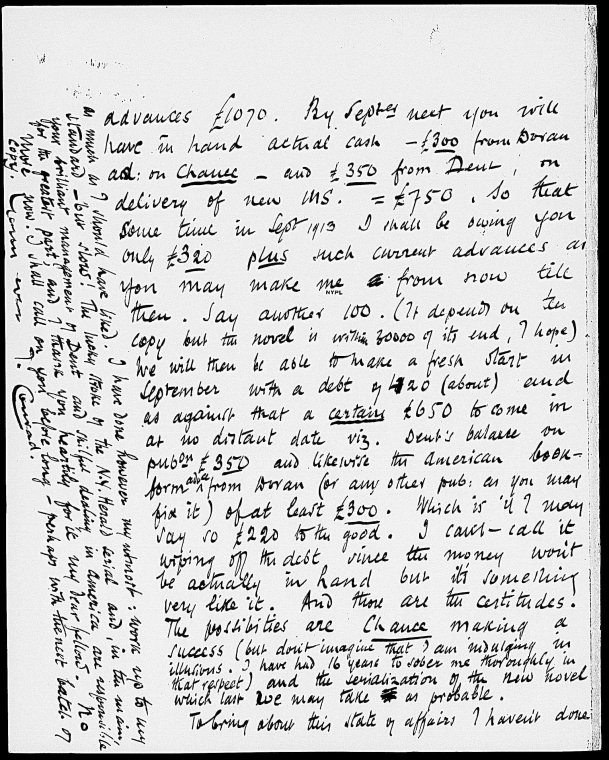 advances £1070. By Septer next you will
have in hand actual cash - £300 from Doran
ad: on Chance - and £350 from Dent, on
delivery of new MS. = £750. So that
some time in Sept 1913 I shall be owing you
only £320 plus such current advances as
you may make me from now till
then. Say another 100. (It depends on the
copy but the novel is within 30000 of its end, I hope)
We will then be able to make a fresh start in
September with a debt of 420 (about) and
as against that a certain £650 to come in
at no distant date viz. Dent's balance on
pubon £350 and likewise the American book-
form adce from Doran (or any other pub: as you may
fix it) of at least £300. Which is if I may
say so £220 to the good. I can't call it
wiping off the debt since the money won't
be actually in hand but it's something
very like it. And those are the certitudes.
The possibities are Chance making a
success (but don't imagine that I am indulging in
illusions. I have had 16 years to sober me thoroughly in
that respect) and the serialization of the new novel
which last we may take as probable.
To bring about this state of affairs I haven't done
as much as I should have liked. I have done however my utmost: work up to my
standard - but slow! The lucky stroke of the N.Y. Herald serial and, in the main,
your brilliant management of Dent and skilful dealing in america are responsible
for the greatest part; and I thank you heartily for it my dear fellow. No
more now. I shall call on you before long - perhaps with the next batch of
copy. Yours ever
Conrad.
NYPL